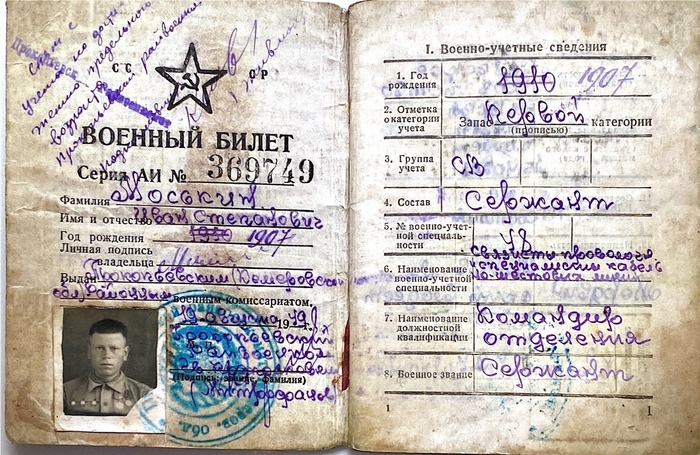 Снят с
учета по дости-
жению предельного
возраста
СС ОР
ВОЕННЫЙ БИЛЕТ
Серия АИ № 369749
Фамилия Моськин
Имя и отчество Иван Степанович
Год рождения 1910 1907
Личная подпись
владельца
Выдан Прокопьевским Кемеровской
обл районным
военным комиссариатом,
19 августа 194
Прокопьевский
(Подпись, звание, фамилия)
I. Военно-учетные сведения
1. Год
рождения 1910 1907
2. Отметка
о категории
учета Запас Первой категории
(прописью)
3. Группа
учета СВ
4. Состав Сержант
5. № военно-учет-
ной специаль-
ности
6. Наименование
военно-учетной
специальности связисты проводной
специалисты кабель
но-шестовых линий
7. Наименование
должностной
квалификации Командир
отделения
8. Военное звание Сержант
1 1